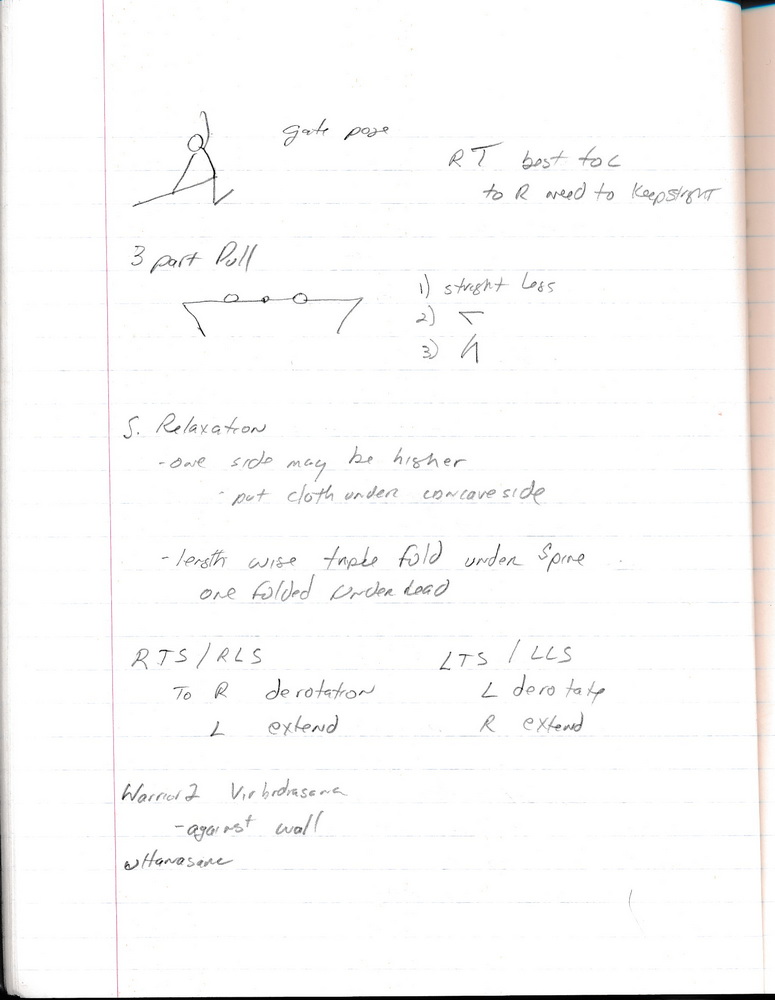 gate pose
RT best to L
to R need to keep stright
3 part Pull
1) stright Legs
2)
3)
S. Relaxation
- one side may be higher
- put cloth under concave side
- length wise triple fold under Spine
one folded under head
RTS / RLS
To R derotation
L extend
LTS / LLS
L derotate
R extend
Warrior 2 Virbrdrasana
- against wall
uttanasana